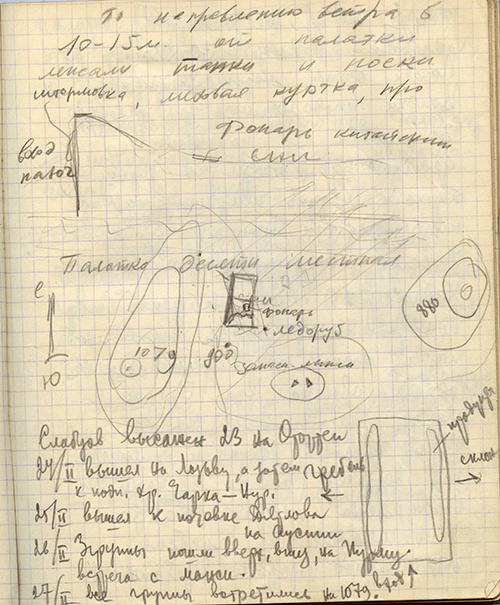 По направлению ветра в
10-15м. от палатки
лежали тапки и носки
штормовка, меховая куртка, про
Фонарь китайский
вход
палат
сни
Палатка десяти местная
С
Ю
фонарь
ледоруб
1079
900
880
Слабцов высажен 23 на Отортен
24/II вышел на Лозьву, а затем
гребень
к подн. хр. Чарка-Нур.
25/II вышел к ночевке Дятлова
на Ауспии
26/II 3 группы пошли вверх, вниз, на Пурму
встреча с манси.
27/II все группы встретились на 1079.
продукты
склон
вход